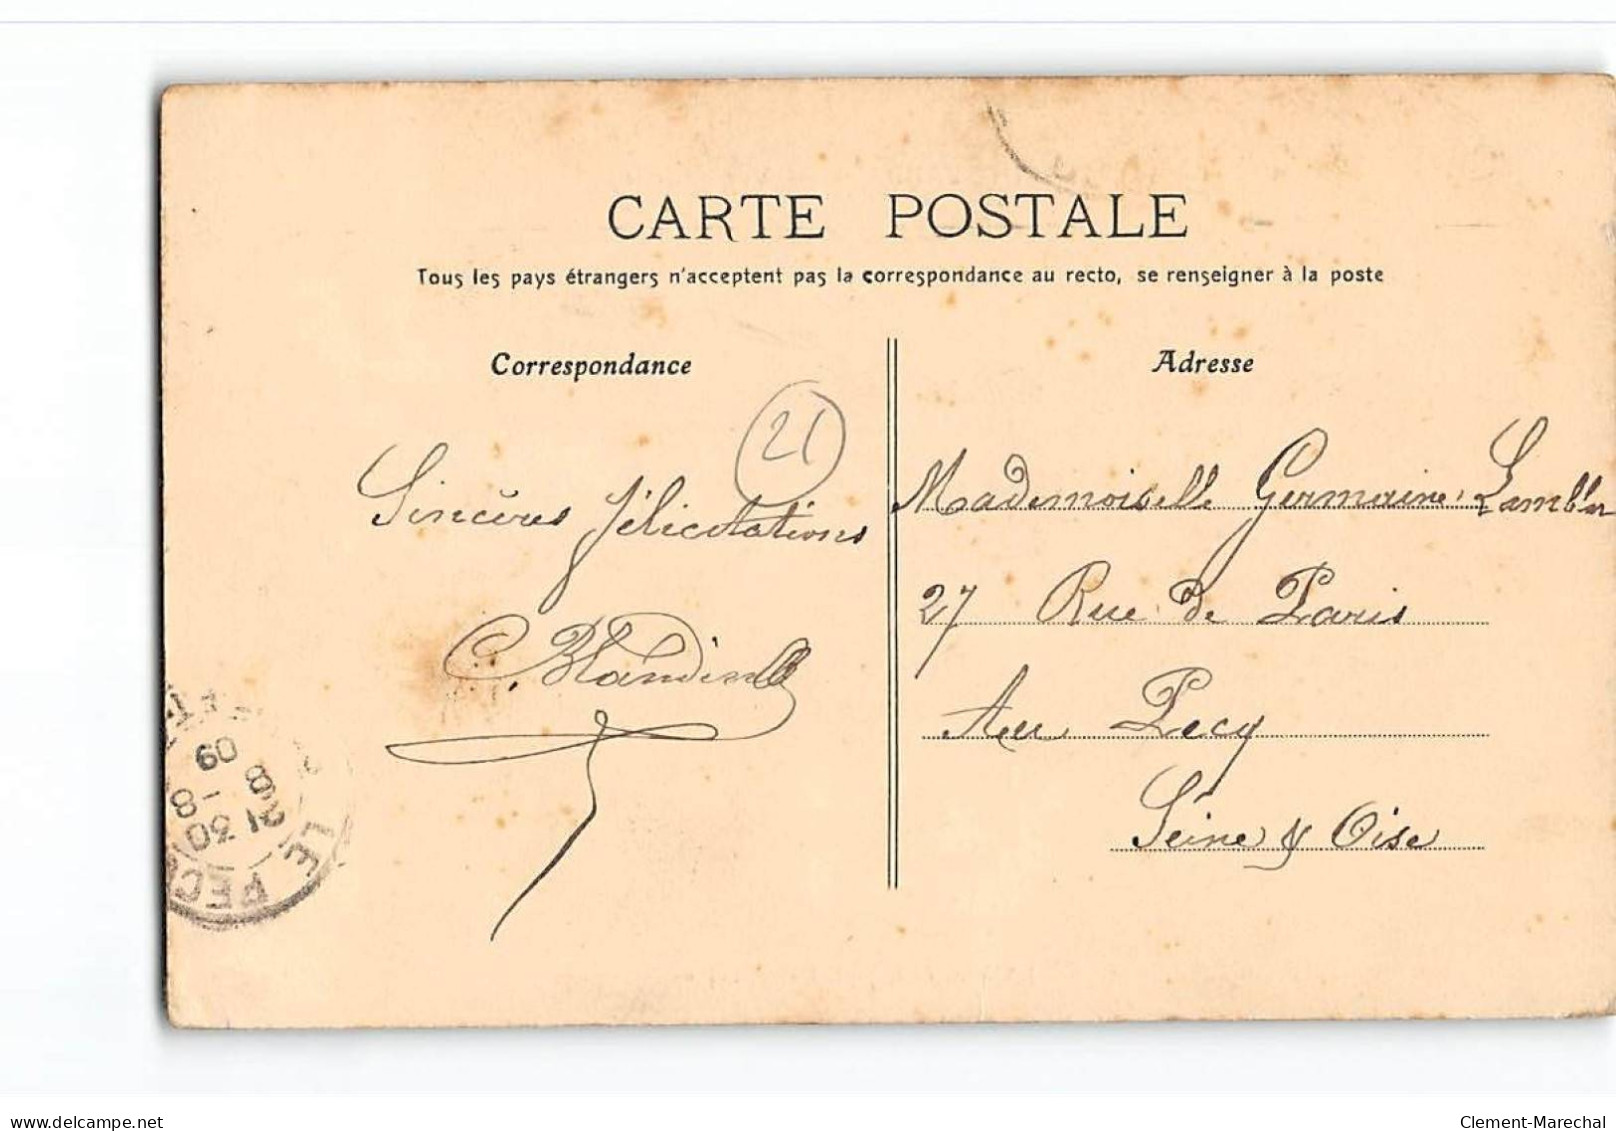 CARTE POSTALE
Tous les pays étrangers n'acceptent pas la correspondance au recto, se renseigner à la poste
Correspondance
21
Sincères félicitations
C. Blandin
Adresse
Mademoiselle Germaine
27 Rue de Paris
Au Pecq
Seine & Oise
LE PECQ
21 30
8 - 8
09
www.delcampe.net
Clement-Marechal